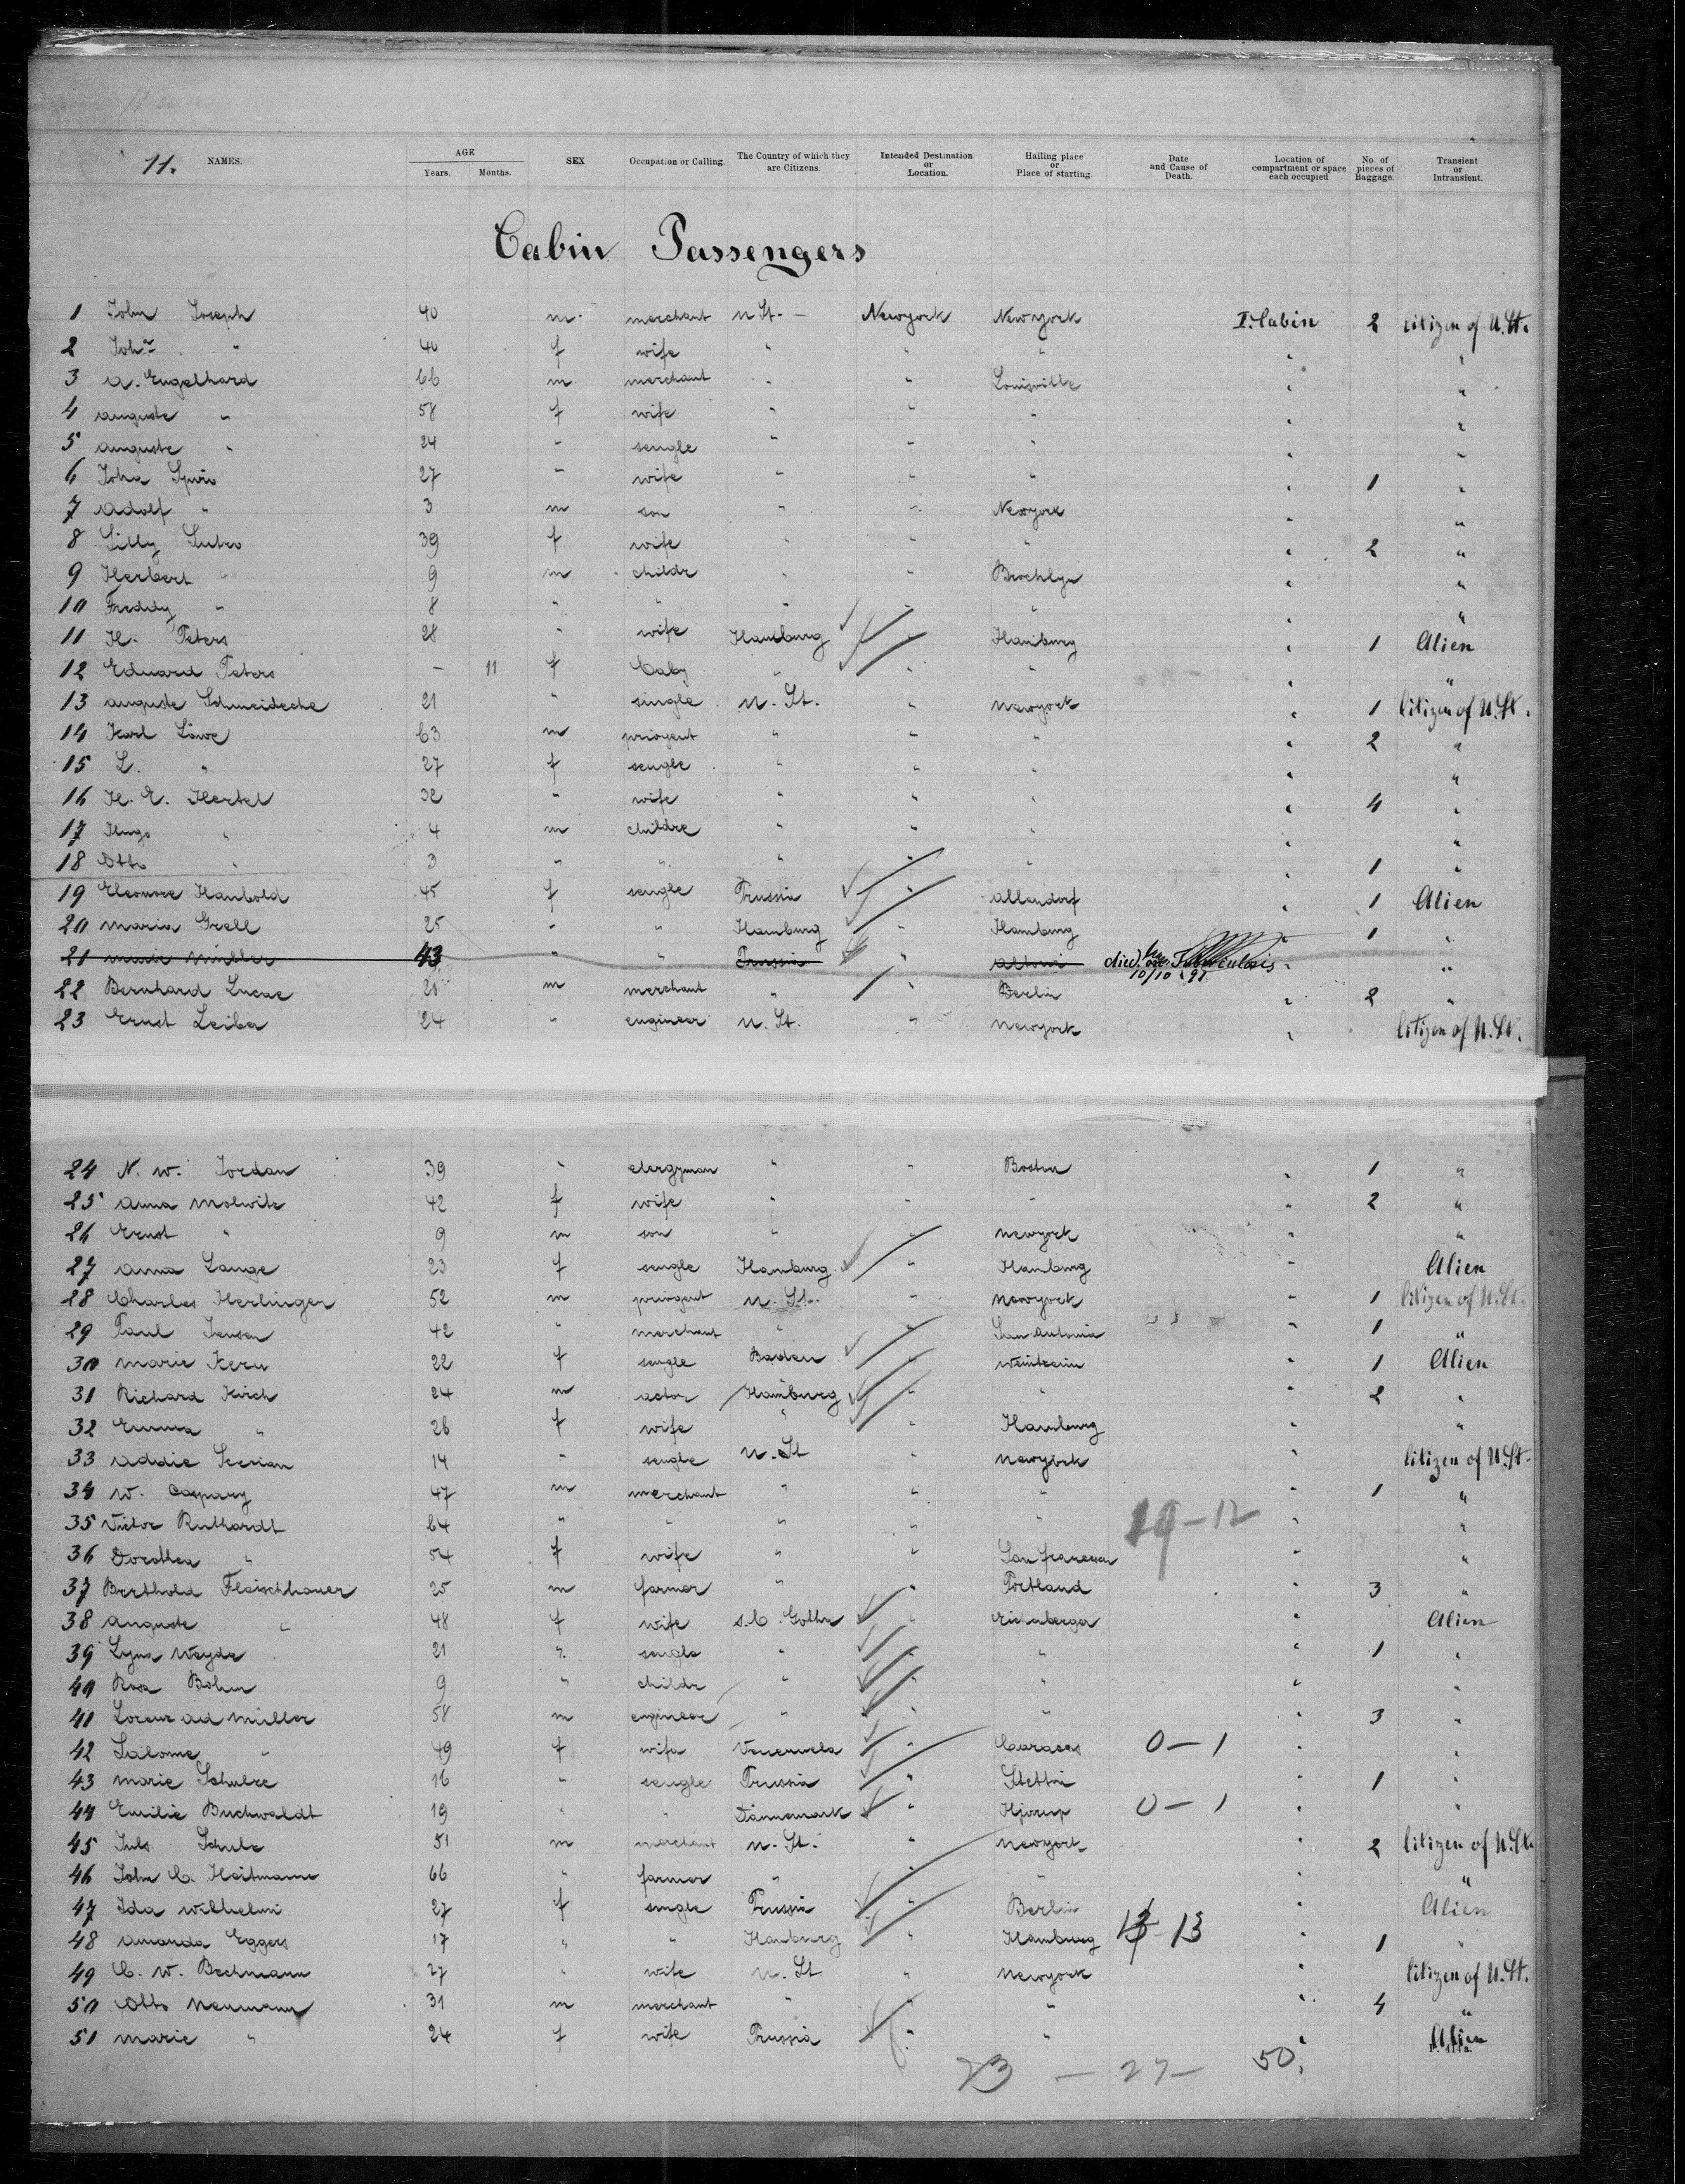 11.
NAMES. AGE Years. Months. SEX Occupation or Calling. The Country of which they are Citizens. Intended Destination or Location. Hailing place or Place of starting. Date and Cause of Death. Location of compartment or space each occupied No. of pieces of Baggage. Transient or Intransient.
Cabin Passengers
1 John Joseph 40 m. merchant U St. — Newyork Newyork I. Cabin 2 Citizen of U. St.
2 " 40 f wife " " " " "
3 A. Engelhard 66 m merchant " " Louisville " "
4 Auguste " 58 f wife " " " " "
5 Auguste " 24 " sengle " " " " "
6 27 " wife " " " " 1 "
7 Adolf " 3 m son " " Newyork " "
8 Lilly Sutro 39 f wife " " " " 2 "
9 Herbert " 9 m childr " " Brooklyn " "
10 Freddy " 8 " " " " " " "
11 H. Peters 28 " wife Hamburg " Hamburg " 1 Alien
12 Eduard Peters – 11 f baby " " " " "
13 Auguste 21 " single U. St. " Newyork " 1 Citizen of U. St.
14 Karl Löwe 63 m " " " " 2 "
15 L. " 27 f sengle " " " " "
16 H. E. Hertel 32 " wife " " " " 4 "
17 Hugo " 4 m childre " " " " "
18 Otto " 3 " " " " " " 1 "
19 Eleonore Haubold 45 f sengle Prussia " Allendorf " 1 Alien
20 Maria Grell 25 " " Hamburg " Hamburg " 1 "
21 Marie Müller 43 " " Prussia " Altona died Tuberculosis 10/10 " "
22 Bernhard Lucae 28 m merchant " " Berlin " 2 "
23 Ernst Leiba 24 " engineer U. St. " Newyork " Citizen of U. St.
24 N. W. Jordan 39 " clergyman " " Boston " 1 "
25 Anna Molwitz 42 f wife " " " " 2 "
26 Ernst " 9 m son " " Newyork " "
27 Anna Lange 23 f sengle Hamburg " Hamburg " Alien
28 Charles Herlinger 52 m U. St. " Newyork " 1 Citizen of U. St.
29 Paul Jensen 42 " merchant " " San Antonia " 1 "
30 Marie Kern 22 f sengle Baden " " 1 Alien
31 Richard Kirch 24 m actor Hamburg " " " 2 "
32 Emma " 26 f wife " " Hamburg " "
33 Addie 14 " sengle U. St " Newyork " Citizen of U. St.
34 W. Caspary 47 m merchant " " " " 1 "
35 Victor Ruthardt 64 " " " " " 19 – 12 " "
36 Dorothea " 54 f wife " " " "
37 Berthold Fleischhauer 25 m farmer " " Portland " 3 "
38 Auguste " 48 f wife S. C. Gotha " " Alien
39 Weyde 21 " sengle " " " " 1 "
40 Rosa Böhm 9 " childr " " " " "
41 Lorenz Ad Müller 58 m engineer " " " " 3 "
42 Salome " 49 f wife Venezuela " Caracas 0 – 1 " "
43 Marie Schulze 16 " sengle Prussia " Stettin " 1 "
44 Emilie Buchwaldt 19 " " Dannemark " 0 – 1 " "
45 Juls Schulz 51 m merchant U. St. " Newyork " 2 Citizen of U. St.
46 John C. Heitmann 66 " farmer " " " " "
47 Ida Wilhelmi 27 f sengle Prussia " Berlin " Alien
48 Amanda Eggers 17 " " Hamburg " Hamburg 13 – 13 " 1 "
49 C. W. Bechmann 27 " wife U. St " Newyork " Citizen of U. St.
50 Otto Neumann 31 m merchant " " " " 4 "
51 Marie " 24 f wife Prussia " " " Alien
23 – 27 – 50